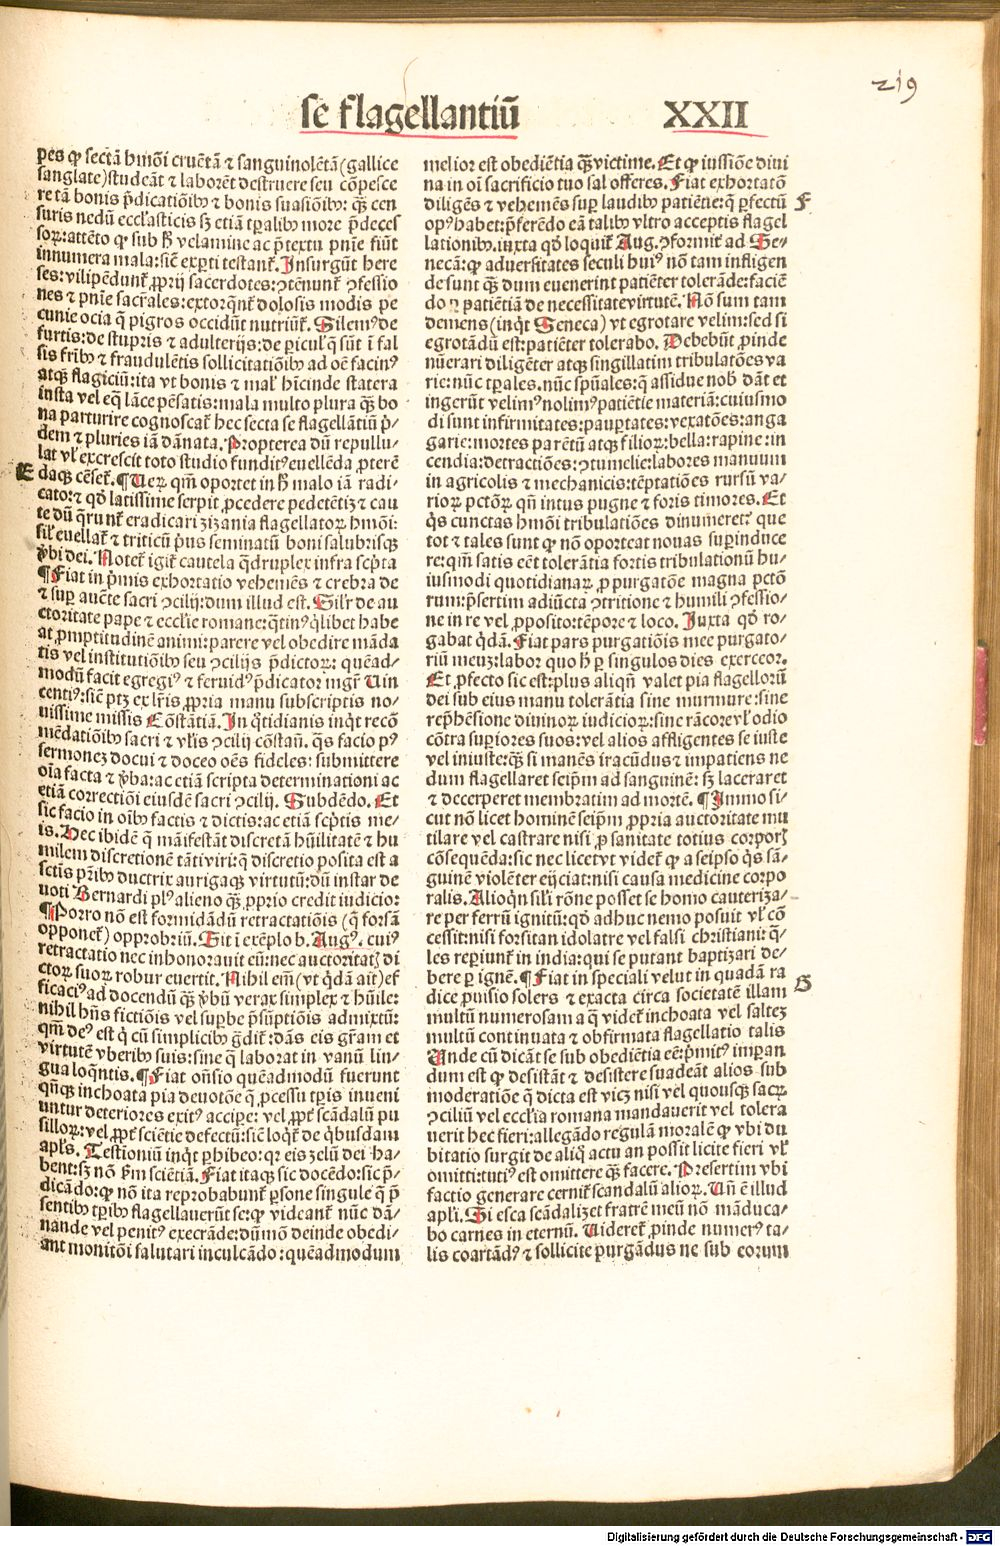 219
se flagellantiū XXII
pes ꝙ sectā hmōi cruētā ⁊ sanguinolētā (gallice
sanglate) studeāt ⁊ laborēt destruere seu cōpesce
re tā bonis p̄dicatiōibꝰ ⁊ bonis suasiōibꝰ: qͣꝫ cen
suris nedū eccl'asticis sꝫ etiā tꝑalibꝰ more p̄deces
soꝝ: attēto ꝙ sub hͦ velamine ac p̄textu pn̄ie fiūt
innumera mala: sic̄ exꝑti testanť. Insurgūt here
ses: vilipēdunť ꝓprij sacerdotes: ꝯtēnunť ꝯfessio
nes ⁊ pn̄ie sacr̄ales: extorq̄nť dolosis modis pe
cunie ocia q̄ pigros occidūt nutriūť. Silemꝰ de
furtis: de stupris ⁊ adulterijs: de ꝑiculꝭ q̄ sūt ī fal
sis fribꝰ ⁊ fraudulētis sollicitatiōibꝰ ad oē facinꝰ
atqꝫ flagiciū: ita vt bonis ⁊ malꝭ hincinde statera
iusta vel eq̄ lāce pēsatis: mala multo plura qͣꝫ bo
na parturire cognoscať hec secta se flagellātiū p̄-
dem ⁊ pluries iā dānata. Propterea dū repullu-
lat vl' excrescit toto studio funditꝰ euellēda ꝓterē
E daqꝫ cēseť. ¶ Ueꝝ qm̄ oportet in hͦ malo iā radi-
cato: ⁊ qd̄ latissime serpit ꝓcedere pedetētiꝫ ⁊ cau
te dū q̄runť eradicari zizania flagellatoꝝ hmōi:
sil' euellať ⁊ triticū pͥus seminatū boni salubrisqꝫ
v̄bi dei. Noteť igiť cautela qͣdruplex infra scp̄ta
¶ Fiat in pͥmis exhortatio vehemēs ⁊ crebra de
⁊ suꝑ auc̄te sacri ꝯcilij: dum illud est. Silr̄ de au
ctoritate pape ⁊ eccl'ie romane: qͣtinꝰ qͥlibet habe
at ꝓmptitudinē animi: parere vel obedire māda
tis vel institutiōibꝰ seu ꝯcilijs p̄dictoꝝ: quēad-
modū facit egregiꝰ ⁊ feruidꝰ p̄dicator mgr̄ Uin
centiꝰ: sic̄ ptꝫ ex lr̄is ꝓpria manu subscriptis no-
uissime missis Cōstātiā. In qͦtidianis inqͥt recō
mēdatiōibꝰ sacri ⁊ vl'is ꝯcilij cōstan̄. qͣs facio pꝰ
sermonez docui ⁊ doceo oēs fideles: submittere
oīa facta ⁊ v̄ba: ac etiā scripta determinationi ac
etiā correctiōi eiusdē sacri ꝯcilij. Subdēdo. Et
sic facio in oībꝰ factis ⁊ dictis: ac etiā scp̄tis me-
is. Hec ibidē q̄ māifestāt discretā hūilitatē ⁊ hu
milem discretionē tāti viri: q̄ discretio posita est a
sctīs pr̄ibꝰ ductrix aurigaqꝫ virtutū: dū instar de
uoti Bernardi plꝰ alieno qͣꝫ ꝓprio credit iudicio:
¶ Porro nō est formidādū retractatiōis (q̄ forsā
opponeť) opprobriū. Sit ī exēplo b. Augꝰ. cuiꝰ
retractatio nec inhonorauit eū: nec auctoritatꝫ di
ctoꝝ suoꝝ robur euertit. Nihil em̄ (vt qͥdā ait) ef
ficaciꝰ ad docendū qͣꝫ v̄bū verax simplex ⁊ hūile:
nihil hn̄s fictiōis vel suꝑbe p̄sūptiōis admixtū:
qm̄ deꝰ est qͥ cū simplicibꝰ grͣdiť: dās eis gr̄am et
virtutē vberibꝰ suis: sine q̄ laborat in vanū lin-
gua loq̄ntis. ¶ Fiat on̄sio quēadmodū fuerunt
qn̄qꝫ inchoata pia deuotōe q̄ ꝓcessu tꝑis inueni
untur deteriores exitꝰ accipe: vel ꝓpť scādalū pu
silloꝝ: vel ꝓpť sciētie defectū: sic̄ loqͥť de qͥbusdam
apl's. Testioniū inqͥt ꝑhibeo: qr eis zelū dei ha-
bent: sꝫ nō ẜm sciētiā. Fiat itaqꝫ sic docēdo: sic p̄-
dicādo: ꝙ nō ita reprobabunť ꝑsone singule q̄ p̄
sentibꝰ tꝑibꝰ flagellauerūt se: ꝙ videanť nūc dā-
nande vel penitꝰ execrāde: dūmō deinde obedi-
ant monitōi salutari inculcādo: quēadmodum
melior est obediētia qͣꝫ victime. Et ꝙ iussiōe diui
na in oī sacrificio tuo sal offeres. Fiat exhortatō
diligēs ⁊ vehemēs suꝑ laudibꝰ patiētie: q̄ ꝑfectū F
opꝰ habet: p̄ferēdo eā talibꝰ vltro acceptis flagel
lationibꝰ. iuxta qd̄ loquiť Aug. ꝯformiť ad Se-
necā: ꝙ aduersitates seculi huiꝰ nō tam infligen
de sunt qͣꝫ dum euenerint patiēter tolerāde: faciē
do patiētiā de necessitate virtutē. Nō sum tam
demens (inqͥt Seneca) vt egrotare velim: sed si
egrotādū est: patiēter tolerabo. Debebūt ꝓinde
nūerari diligēter atqꝫ singillatim tribulatōes va
rie: nūc tꝑales. nūc sp̄uales: q̄ assidue nobꝭ dāt et
ingerūt velimꝰ nolimꝰ patiētie materiā: cuiusmo
di sunt infirmitates: pauꝑtates: vexatōes: anga
garie: mortes parētū atqꝫ filioꝝ: bella: rapine: in
cendia: detractiōes: ꝯtumelie: labores manuum
in agricolis ⁊ mechanicis: tēptatiōes rursū va-
rioꝝ pctōꝝ qn̄ intus pugne ⁊ foris timores. Et
qͥs cunctas hmōi tribulatiōes dinumeret? que
tot ⁊ tales sunt ꝙ nō oporteat nouas suꝑinduce
re: qm̄ satis eēt tolerātia fortis tribulationū hu-
iusmodi quotidianaꝝ ꝓ purgatōe magna pctō
rum: p̄sertim adiūcta ꝯtritione ⁊ humili ꝯfessio-
ne in re vel ꝓposito: tēpore ⁊ loco. Iuxta qd̄ ro-
gabat qͥdā. Fiat pars purgatiōis mee purgato-
riū meuꝫ: labor quo hͦ ꝑ singulos dies exerceor.
Et ꝓfecto sic est: plus aliqn̄ valet pia flagelloꝝ
dei sub eius manu tolerātia sine murmure: sine
rep̄hēsione diuinoꝝ iudicioꝝ: sine rācore vl' odio
cōtra suꝑiores suos: vel alios affligentes se iuste
vel iniuste: qͣꝫ si manēs iracūdus ⁊ impatiens ne
dum flagellaret seip̄m ad sanguinē: sꝫ laceraret
⁊ decerperet membratim ad mortē. ¶ Immo si-
cut nō licet hominē seip̄m ꝓpria auctoritate mu
tilare vel castrare nisi ꝓ sanitate totius corporꝭ
cōsequēda: sic nec licet vt videť ꝙ a seipso qͥs sā-
guinē violēter eijciat: nisi causa medicine corpo
ralis. Alioqͥn sil'i rōne posset se homo cauteriza-
re per ferrū ignitū: qd̄ adhuc nemo posuit vl' cō
cessit: nisi forsitan idolatre vel falsi christiani: q̄-
les reꝑiunť in india: qui se putant baptizari de-
bere ꝑ ignē. ¶ Fiat in speciali velut in quadā ra G
dice ꝓuisio solers ⁊ exacta circa societatē illam
multū numerosam a q̄ videť inchoata vel saltez
multū continuata ⁊ obfirmata flagellatio talis
Unde cū dicāt se sub obediētia eē: pͥmitꝰ imperan
dum est ꝙ desistāt ⁊ desistere suadeāt alios sub
moderatiōe q̄ dicta est vicꝫ nisi vel quousqꝫ sacꝝ
ꝯciliū vel eccl'ia romana mandauerit vel tolera
uerit hec fieri: allegādo regulā moralē ꝙ vbi du
bitatio surgit de aliqͦ actu an possit licite fieri vl'
omitti: tutiꝰ est omittere qͣꝫ facere. Presertim vbi
factio generare cerniť scandalū alioꝝ. Un̄ ē illud
apl'i. Si esca scādalizet fratrē meū nō māduca-
bo carnes in eternū. Uidereť ꝓinde numerꝰ ta-
lis coartādꝰ ⁊ sollicite purgādus ne sub eorum
Digitalisierung gefördert durch die Deutsche Forschungsgemeinschaft - DFG